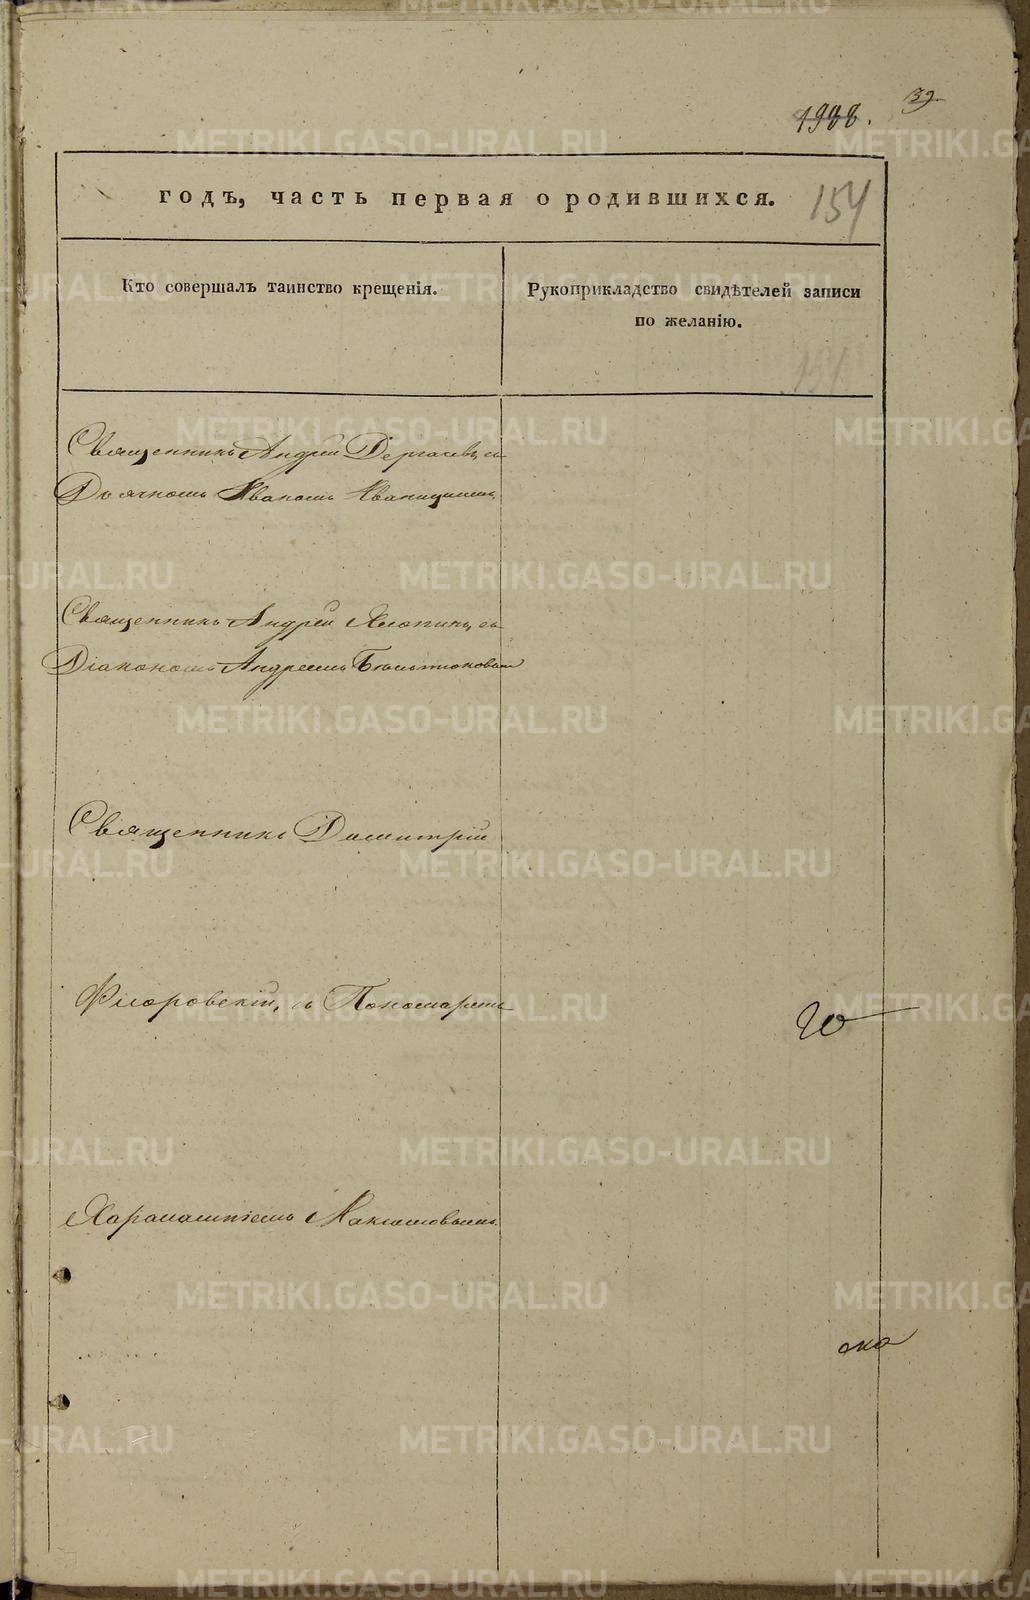 39
1988.
годъ, часть первая о родившихся.
154
Кто совершалъ таинство крещенія.
Рукоприкладство свидѣтелей записи
по желанію.
Священникъ Андрей Дергачевъ, съ
Дьячкомъ Иваномъ Иваницкимъ
Священникъ Андрей Хлопинъ, съ
Діакономъ Андреемъ
Священникъ Димитрій
Флоровскій, съ Пономаремъ
Харалампіемъ Максимовымъ.
METRIKI.GASO-URAL.RU